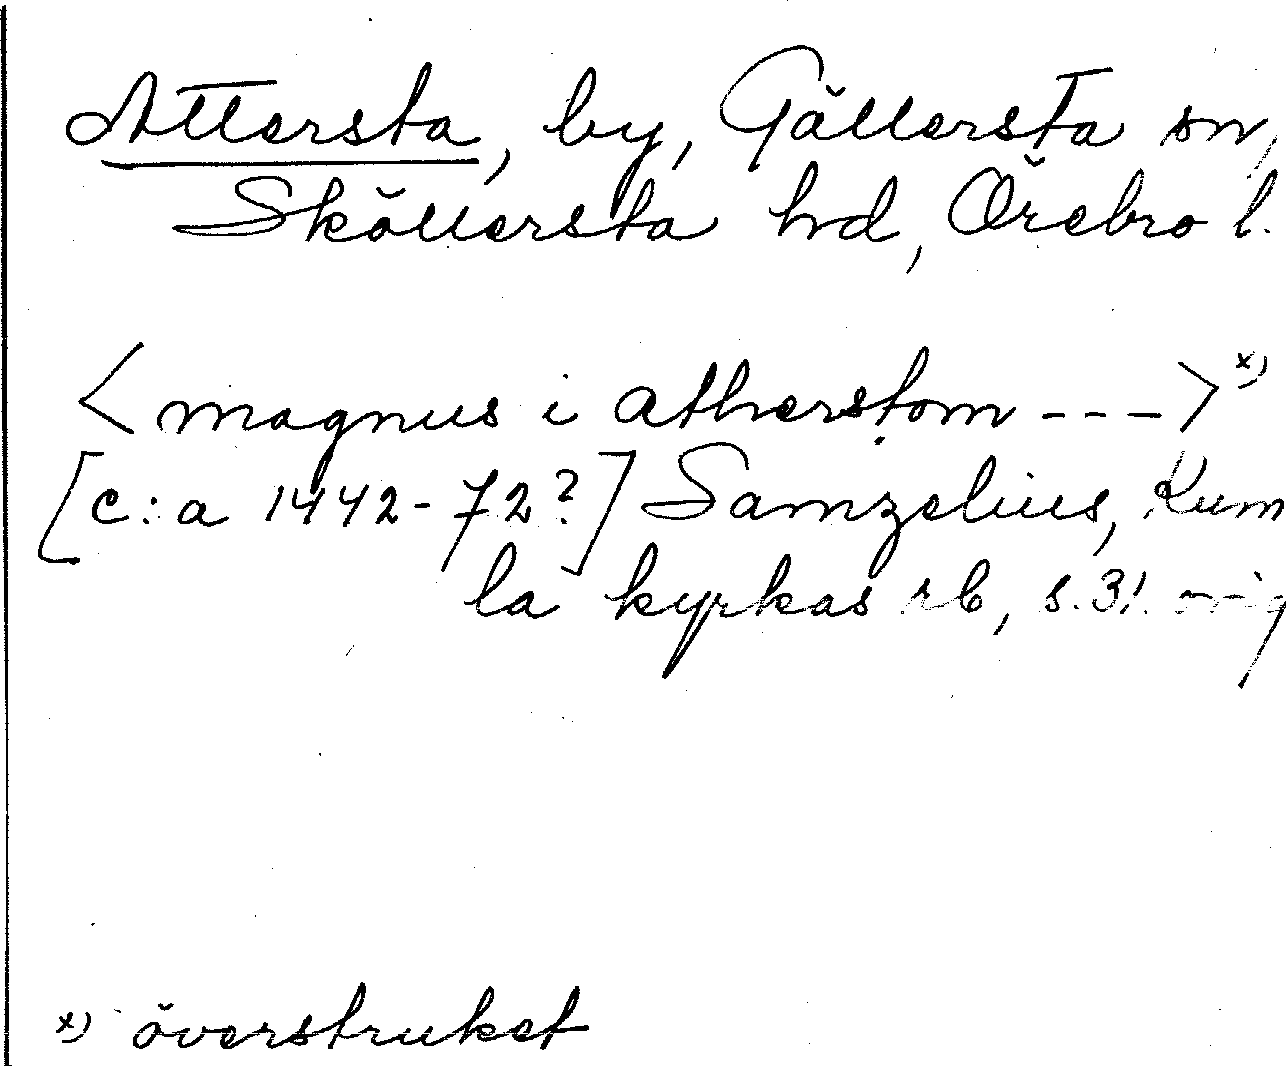 Attersta, by, Gällersta sn,
Sköllersta hd, Örebro l.
< magnus i atherstom - - - > x)
[c:a 1442-72?] Samzelius, Kum
la kyrkas rb, s. 31. orig
x) överstruket